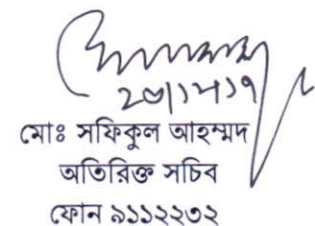 মোঃ সফিকুল আহম্মদ
অতিরিক্ত সচিব
ফোন ৯১১২২৩২